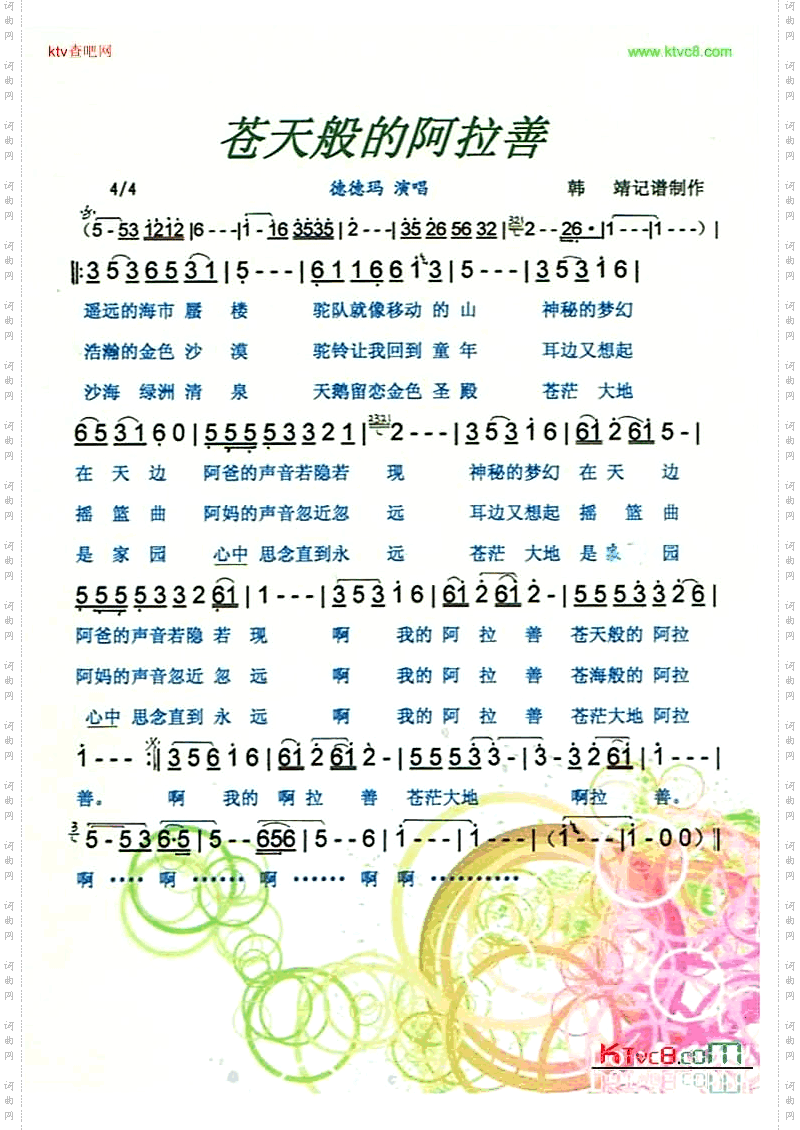 ktv查吧网 www.ktvc8.com
苍天般的阿拉善
4/4 德德玛 演唱 韩 靖记谱制作
(5-53 1212|6---|1-16 3535|2---|35 26 56 32|2--26·|1---|1---)|
‖:353653 1|5---|611661 3|5---|353 16|
遥远的海市 蜃 楼 驼队就像移动 的 山 神秘的梦幻
浩瀚的金色 沙 漠 驼铃让我回到 童 年 耳边又想起
沙海 绿洲 清 泉 天鹅留恋金色 圣 殿 苍茫 大地
653160|555533 21|2---|353 16|61 2 61 5-|
在 天 边 阿爸的声音若隐若 现 神秘的梦幻 在 天 边
摇 篮 曲 阿妈的声音忽近忽 远 耳边又想起 摇 篮 曲
是 家 园 心中 思念直到永 远 苍茫 大地 是 家 园
5555332 61|1---|353 16|61 2 61 2-|555332 6|
阿爸的声音若隐 若 现 啊 我的 阿 拉 善 苍天般的 阿拉
阿妈的声音忽近 忽 远 啊 我的 阿 拉 善 苍海般的 阿拉
心中 思念直到 永 远 啊 我的 阿 拉 善 苍茫大地 阿拉
1---:‖356 16|61 2 61 2-|55533-|3-2 61|1---|
善。 啊 我的 啊 拉 善 苍茫大地 啊拉 善。
5-53 6·5|5--656|5--6|1---|1---|(1---|1-00)‖
啊 ···· 啊 ······· 啊 ······ 啊 啊 ··········
KTvc8.com
词曲网